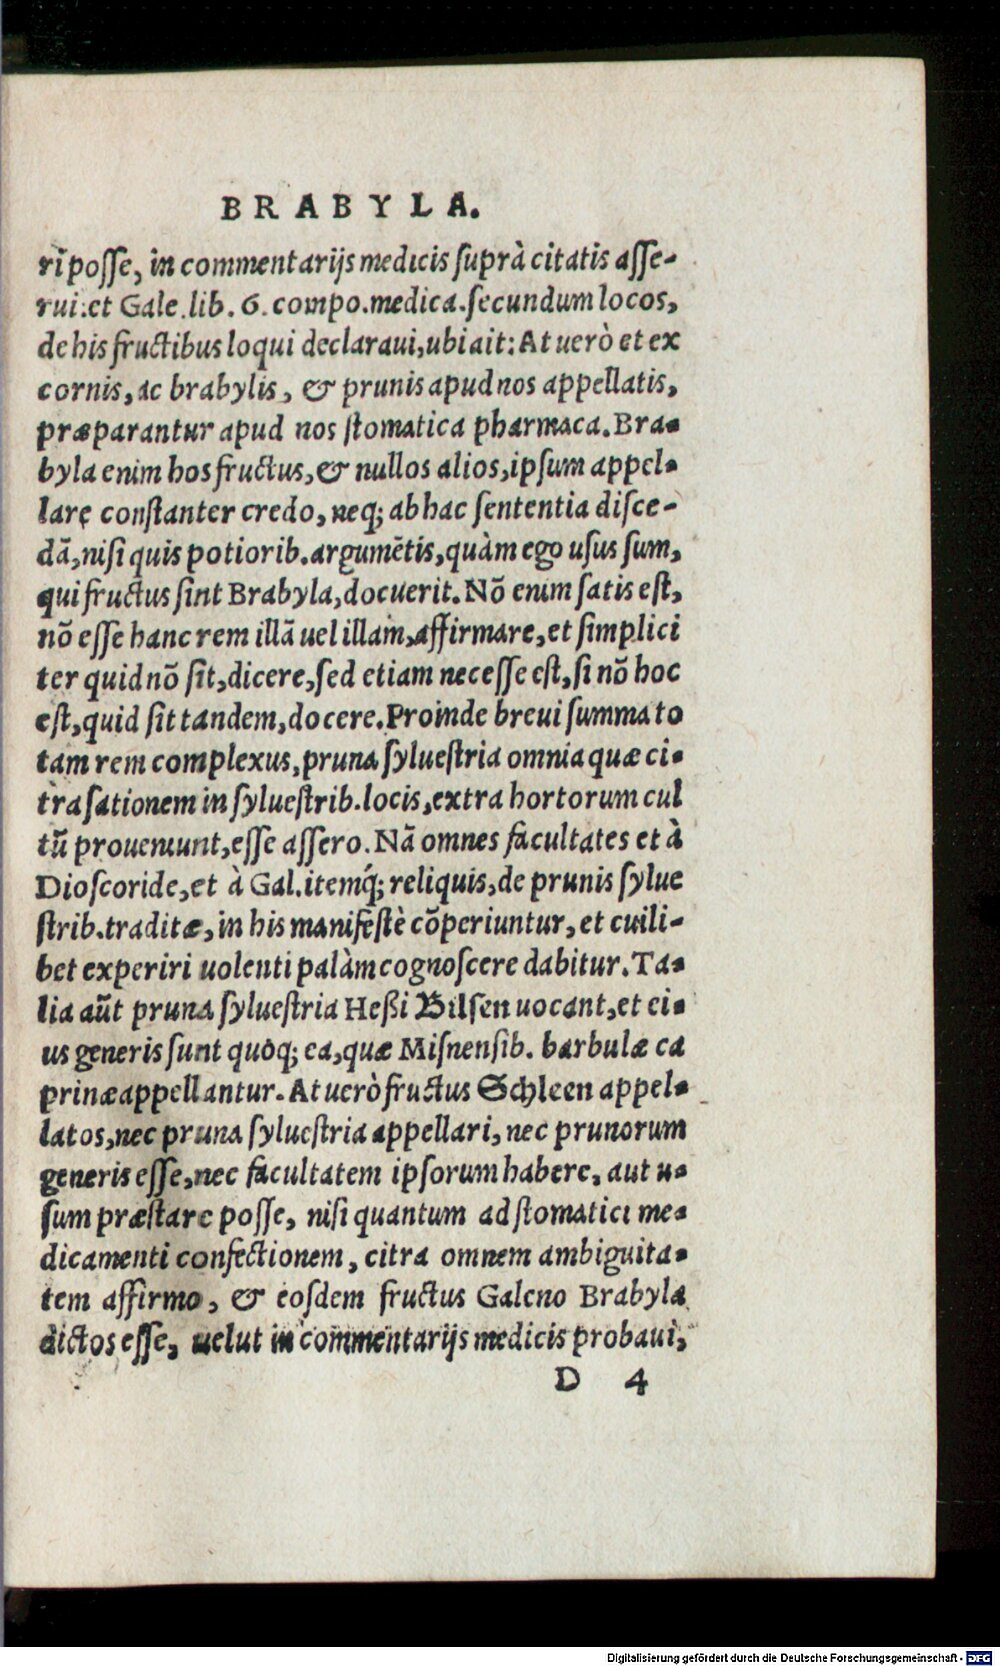 BRABYLA.
ri posse, in commentarijs medicis suprà citatis asse-
rui: et Gale. lib. 6. compo. medica. secundum locos,
de his fructibus loqui declaraui, ubi ait: At uerò et ex
cornis, ac brabylis, & prunis apud nos appellatis,
præparantur apud nos stomatica pharmaca. Bra-
byla enim hos fructus, & nullos alios, ipsum appel-
lare constanter credo, neq; ab hac sententia disce-
dā, nisi quis potiorib. argumētis, quàm ego usus sum,
qui fructus sint Brabyla, docuerit. Nō enim satis est,
nō esse hanc rem illā uel illam, affirmare, et simplici
ter quid nō sit, dicere, sed etiam necesse est, si nō hoc
est, quid sit tandem, docere. Proinde breui summa to
tam rem complexus, pruna syluestria omnia quæ ci-
tra sationem in syluestrib. locis, extra hortorum cul
tū proueniunt, esse assero. Nā omnes facultates et à
Dioscoride, et à Gal. itemq́; reliquis, de prunis sylue
strib. traditæ, in his manifestè cōperiuntur, et cuili-
bet experiri uolenti palàm cognoscere dabitur. Ta-
lia aūt pruna syluestria Heßi Bilsen uocant, et ei-
us generis sunt quoq; ea, quæ Misnensib. barbulæ ca
prinæ appellantur. At uerò fructus Schleen appel-
latos, nec pruna syluestria appellari, nec prunorum
generis esse, nec facultatem ipsorum habere, aut u-
sum præstare posse, nisi quantum ad stomatici me-
dicamenti confectionem, citra omnem ambiguita-
tem affirmo, & eosdem fructus Galeno Brabyla
dictos esse, uelut in commentarijs medicis probaui,
D 4
Digitalisierung gefördert durch die Deutsche Forschungsgemeinschaft - DFG